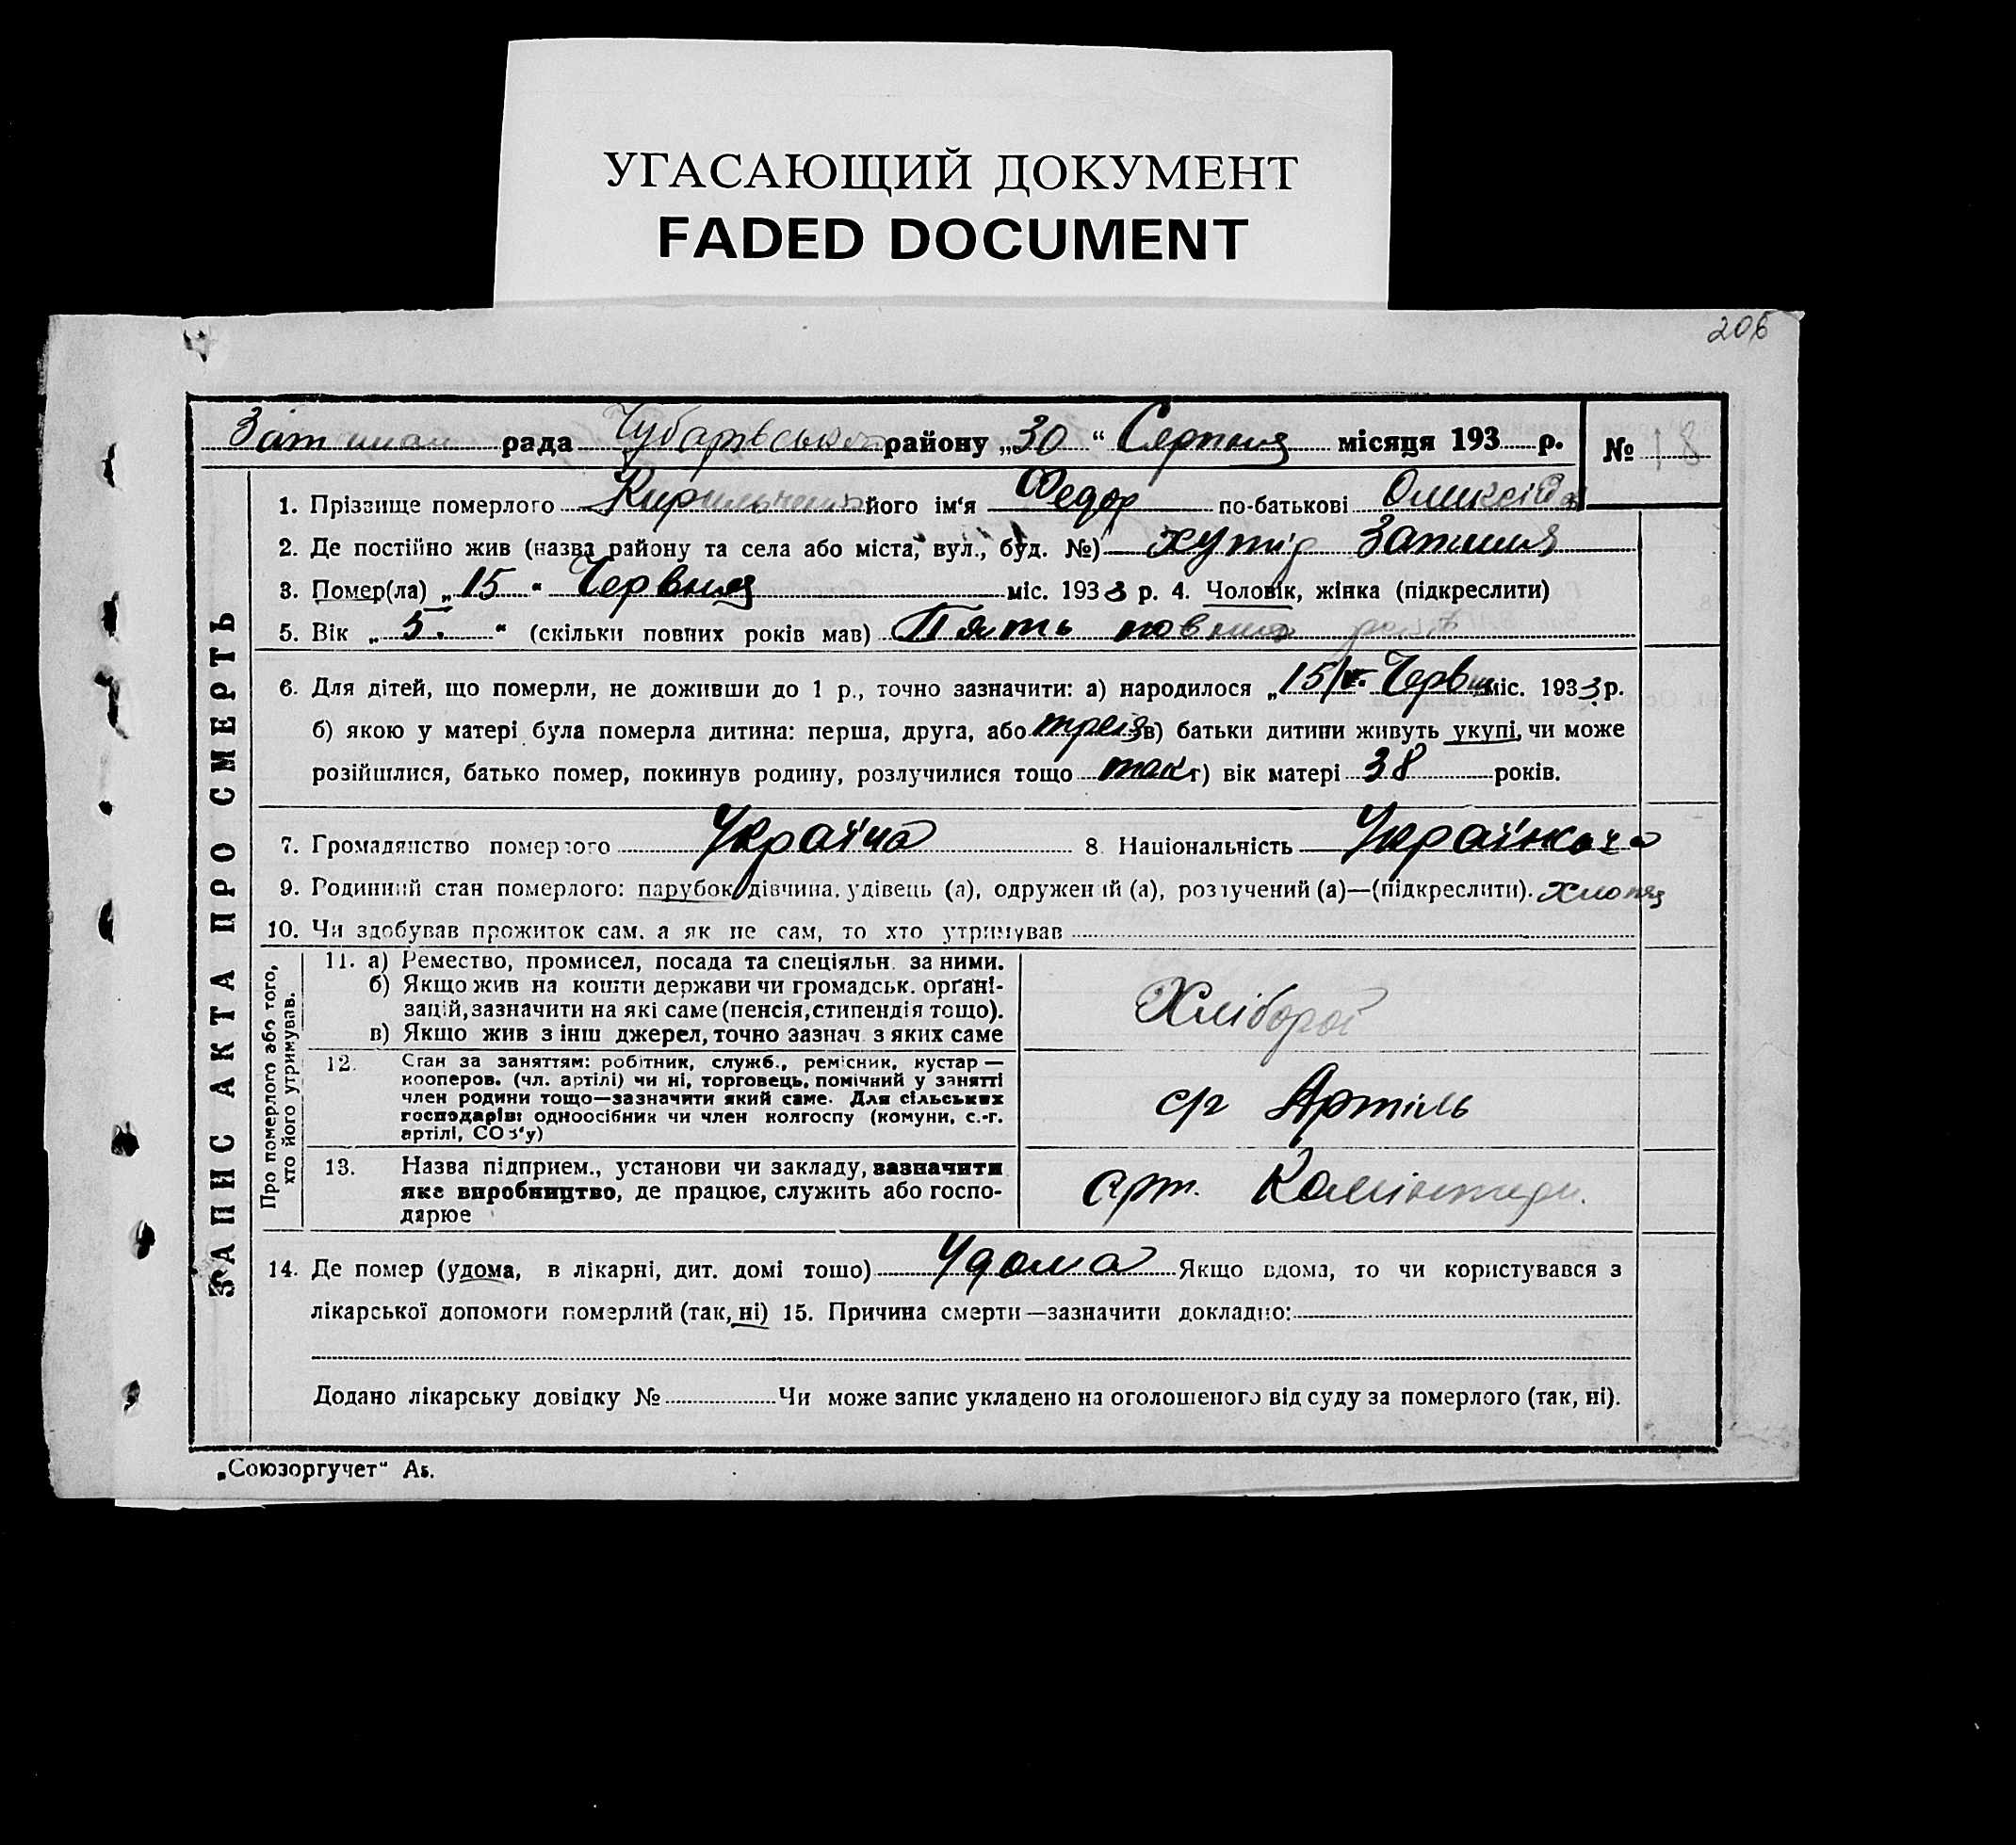 УГАСАЮЩИЙ ДОКУМЕНТ
FADED DOCUMENT
206
рада Чубарівського району „30“ Серпня місяця 193 р. № 18
ЗАПИС АКТА ПРО СМЕРТЬ
1. Прізвище померлого його ім‘я Федор по-батькові
2. Де постійно жив (назва району та села або міста, вул., буд. №) хутір Затишя
3. Помер(ла) „15“ Червня міс. 1933 р. 4. Чоловік, жінка (підкреслити)
5. Вік „5.“ (скільки повних років мав) Пять повних років
6. Для дітей, що померли, не доживши до 1 р., точно зазначити: а) народилося „15/ Червня міс. 1933 р.
б) якою у матері була померла дитина: перша, друга, або третя в) батьки дитини живуть укупі, чи може
розійшлися, батько помер, покинув родину, розлучилися тощо так г) вік матері 38 років.
7. Громадянство померлого Україна 8. Національність
9. Родинний стан померлого: парубок, дівчина, удівець (а), одружений (а), розлучений (а)—(підкреслити).
10. Чи здобував прожиток сам, а як не сам, то хто утримував
Про померлого або того,
хто його утримував.
11. а) Ремество, промисел, посада та спеціяльн. за ними.
б) Якщо жив на кошти держави чи громадськ. орґані-
зацій, зазначити на які саме (пенсія, стипендія тощо).
в) Якщо жив з інш джерел, точно зазнач. з яких саме
Хлібороб
12. Стан за заняттям: робітник, служб., ремісник, кустар —
кооперов. (чл. артілі) чи ні, торговець, помічний у занятті
член родини тощо—зазначити який саме. Для сільських
господарів: одноосібник чи член колгоспу (комуни, с.-г.
артілі, СОЗ‘у)
с/г Артіль
13. Назва підприєм., установи чи закладу, зазначити
яке виробництво, де працює, служить або госпо-
дарює
арт. Комінтерн.
14. Де помер (удома, в лікарні, дит. домі тощо) Удома Якщо вдома, то чи користувався з
лікарської допомоги померлий (так, ні) 15. Причина смерти—зазначити докладно:
Додано лікарську довідку № Чи може запис укладено на оголошеного від суду за померлого (так, ні).
„Союзоргучет“